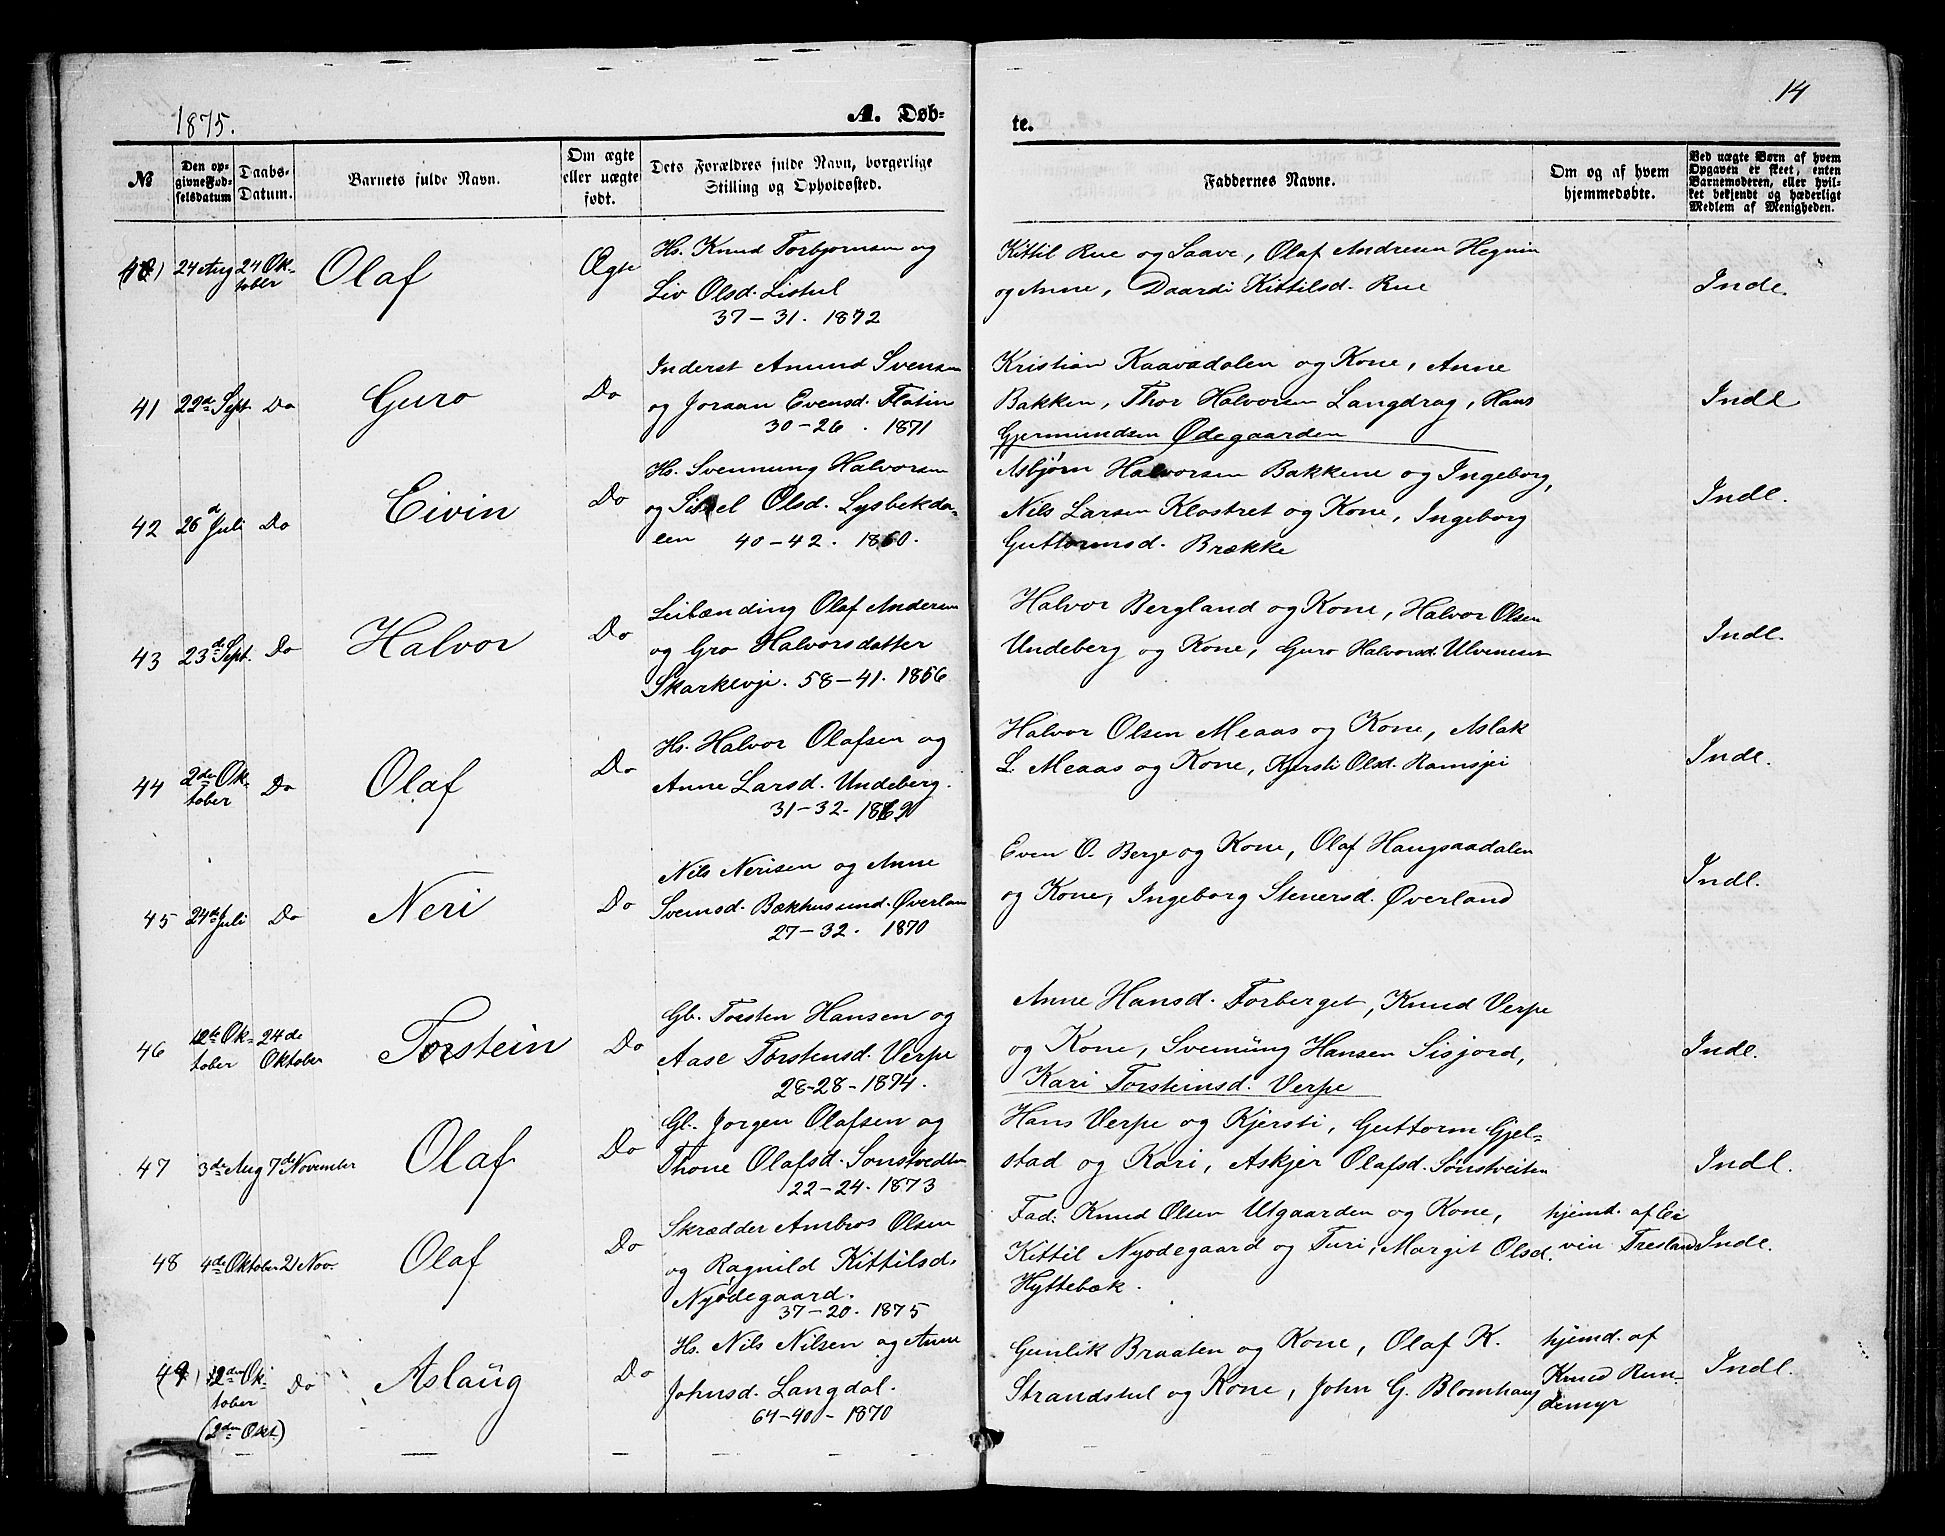 14
1875.
A. Døb-
te.
№
Den op-
givne Fød-
selsdatum
Daabs-
Datum.
Barnets fulde Navn.
Om ægte
eller uægte
født.
Dets Forældres fulde Navn, borgerlige
Stilling og Opholdssted.
Faddernes Navne.
Om og af hvem
hjemmedøbte.
Ved uægte Børn af hvem
Opgaven er skeet, enten
Barnemoderen, eller hvil-
ket bekjendt og hæderligt
Medlem af Menigheden.
40) 24 Aug 24 Ok-
tober
Olaf
Ægte
Hs. Knud Torbjornsen og
Liv Olsd. Listul
37-31. 1872
Kittil Rue og Saave, Olaf Andresen Hegnin
og Anne, Daardi Kittilsd. Rue
Indl.
41 22d Sept. Do
Guro
Do
Inderst Amund Svensen
og Joraan Evensd. Flatin
30-26. 1871
Kristian Kaavadalen og Kone, Anne
Bakken, Thor Halvorsen Langdrag, Hans
Gjermundsen Ødegaarden
Indl
42 26d Juli Do
Eivin
Do
Hs. Svennung Halvorsen
og Sissel Olsd. Lysbekda-
len 40-42. 1860.
Asbjørn Halvorsen Bakkene og Ingeborg,
Nils Larsen Klostret og Kone, Ingeborg
Guttormsd. Brække
Indl.
43 23d Sept. Do
Halvor
Do
Leilænding Olaf Andersen
og Gro Halvorsdatter
Skarkevje. 58-41. 1856
Halvor Bergland og Kone, Halvor Olsen
Undeberg og Kone, Guro Halvorsd. Ulvenesen
Indl.
44 2den Ok-
tober Do
Olaf
Do
Hs. Halvor Olafsen og
Anne Larsd. Undeberg.
31-32. 1869
Halvor Olsen Meaas og Kone, Aslak
L. Meaas og Kone, Kjersti Olsd. Ramsjei
Indl.
45 24de Juli Do
Neri
Do
Nils Nerisen og Anne
Svensd. Bækhus und. Øverland
27-32. 1870
Even O. Berge og Kone, Olaf Haugsaadalen
og Kone, Ingeborg Stenersd. Øverland
Indl.
46 12te Ok-
tober 24de
Oktober
Torstein
Do
Gb. Torsten Hansen og
Aase Torstensd. Verpe
28-28-1874.
Anne Hansd. Forberget, Knud Verpe
og Kone, Svennüng Hansen Sisjord,
Kari Torsteinsd. Verpe
Indl.
47 3de Aug 7de November
Olaf
Do
Gb. Jorgen Olafsen og
Thone Olafsd. Sonstvedten
22-24. 1873
Hans Verpe og Kjersti, Guttorm Gjel-
stad og Kari, Askjer Olafsd. Sønstveiten
Indl.
48 4de Oktober 21 Nov.
Olaf
Do
Skrædder Ambros Olsen
og Ragnild Kittilsd.
Nyødegaard.
37-20. 1875
Fad: Knud Olsen Utgaarden og Kone,
Kittil Nyodegaard og Turi, Margit Olsd.
Hyttebæk.
hjemd. af Ei
vin Tresland
Indl.
49) 12den Ok-
tober
(2den Okt.)
Do
Aslaüg
Do
Hs. Nils Nilsen og Anne
Johnsd. Langdal.
64-40-1870
Gunlik Braaten og Kone, Olaf K.
Strandstul og Kone, John G. Blomhaug
hjemd. af
Knud Run-
demyr
Indl.